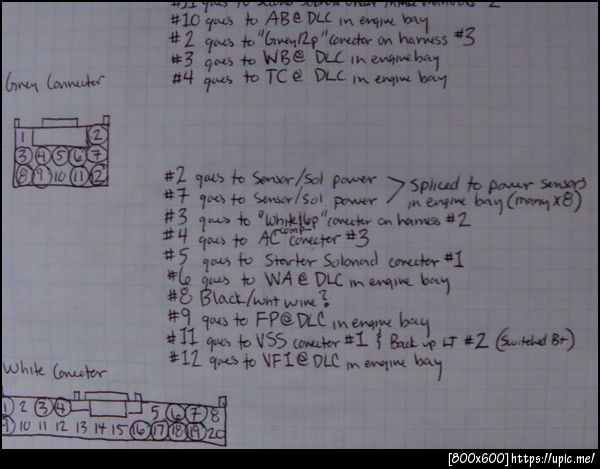 #10 goes to AB@ DLC in engine bay
#2 goes to "Grey12p" conector on harness #3
#3 goes to WB@ DLC in engine bay
#4 goes to TC@ DLC in engine bay
Grey Connector
1 2
3 4 5 6 7
8 9 10 11 2
#2 goes to Sensor/Sol power
#7 goes to Sensor/Sol power
Spliced to power sensors
in engine bay (many x8)
#3 goes to "White16p" conector on harness #2
#4 goes to AC comp conector #3
#5 goes to Starter Solonoid conector #1
#6 goes to WA@ DLC in engine bay
#8 Black/wht wire?
#9 goes to FP@DLC in engine bay
#11 goes to VSS conector #1 & Back up LT #2 (Switched B+)
#12 goes to VF1@ DLC in engine bay
White Conector
1 2 3 4 5 6 7 8
9 10 11 12 13 14 15 16 17 18 19 20
[800x600]https://upic.me/